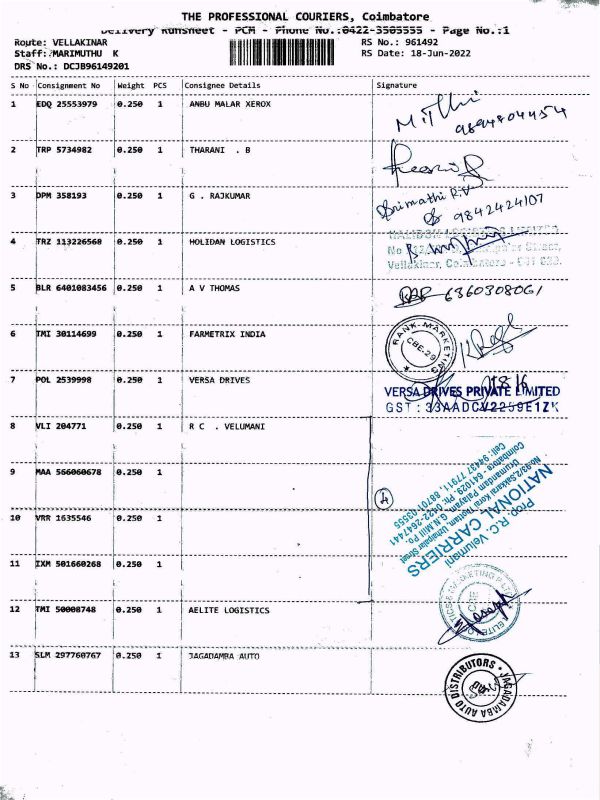 THE PROFESSIONAL COURIERS, Coimbatore
Delivery Runsheet - PCM - Phone No.:0422-3505555 - Page No.:1
Route: VELLAKINAR RS No.: 961492
Staff:MARIMUTHU K RS Date: 18-Jun-2022
DRS No.: DCJB96149201
S No Consignment No Weight PCS Consignee Details Signature
1 EDQ 25553979 0.250 1 ANBU MALAR XEROX
9894804454
2 TRP 5734982 0.250 1 THARANI . B
3 DPM 358193 0.250 1 G . RAJKUMAR
Srimathi R.V
9842424107
4 TRZ 113226568 0.250 1 HOLIDAN LOGISTICS
Vellakinar, Coimbatore
5 BLR 6401083456 0.250 1 A V THOMAS
6360308061
6 TMI 30114699 0.250 1 FARMETRIX INDIA
RANK MARKETING
CBE-29
7 POL 2539998 0.250 1 VERSA DRIVES
VERSA DRIVES PRIVATE LIMITED
GST : 33AADCV2259E1ZK
8 VLI 204771 0.250 1 R C . VELUMANI
9 MAA 566060678 0.250 1
4
10 VRR 1635546 0.250 1
Prop. R.C. Velumani
NATIONAL CARRIERS
11 IXM 501660268 0.250 1
12 TMI 50008748 0.250 1 AELITE LOGISTICS
13 SLM 297760767 0.250 1 JAGADAMBA AUTO
JAGADAMBA AUTO DISTRIBUTORS